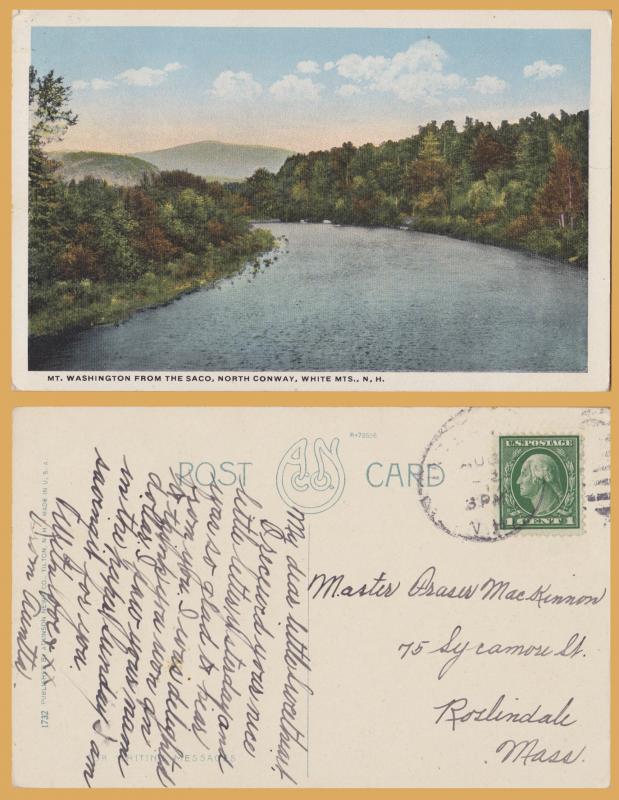 MT. WASHINGTON FROM THE SACO, NORTH CONWAY, WHITE MTS., N. H.
R-72556
POST CARD
ANC CO
AUG
3 PM
U.S. POSTAGE
1 CENT 1
My dear little Sweetheart
I received your nice
little letter yesterday and
was so glad to hear
from you. I was delighted
to think you won on
dollar I have yours now
in the hopes Sunday I am
saving it for you
With love
from Auntie
Master Fraser MacKinnon
75 Sycamore St.
Roslindale
Mass.
FOR WRITING MESSAGES
1732 PUBLISHED BY ATKINSON NEWS CO., TILTON, N. H. MADE IN U. S. A.